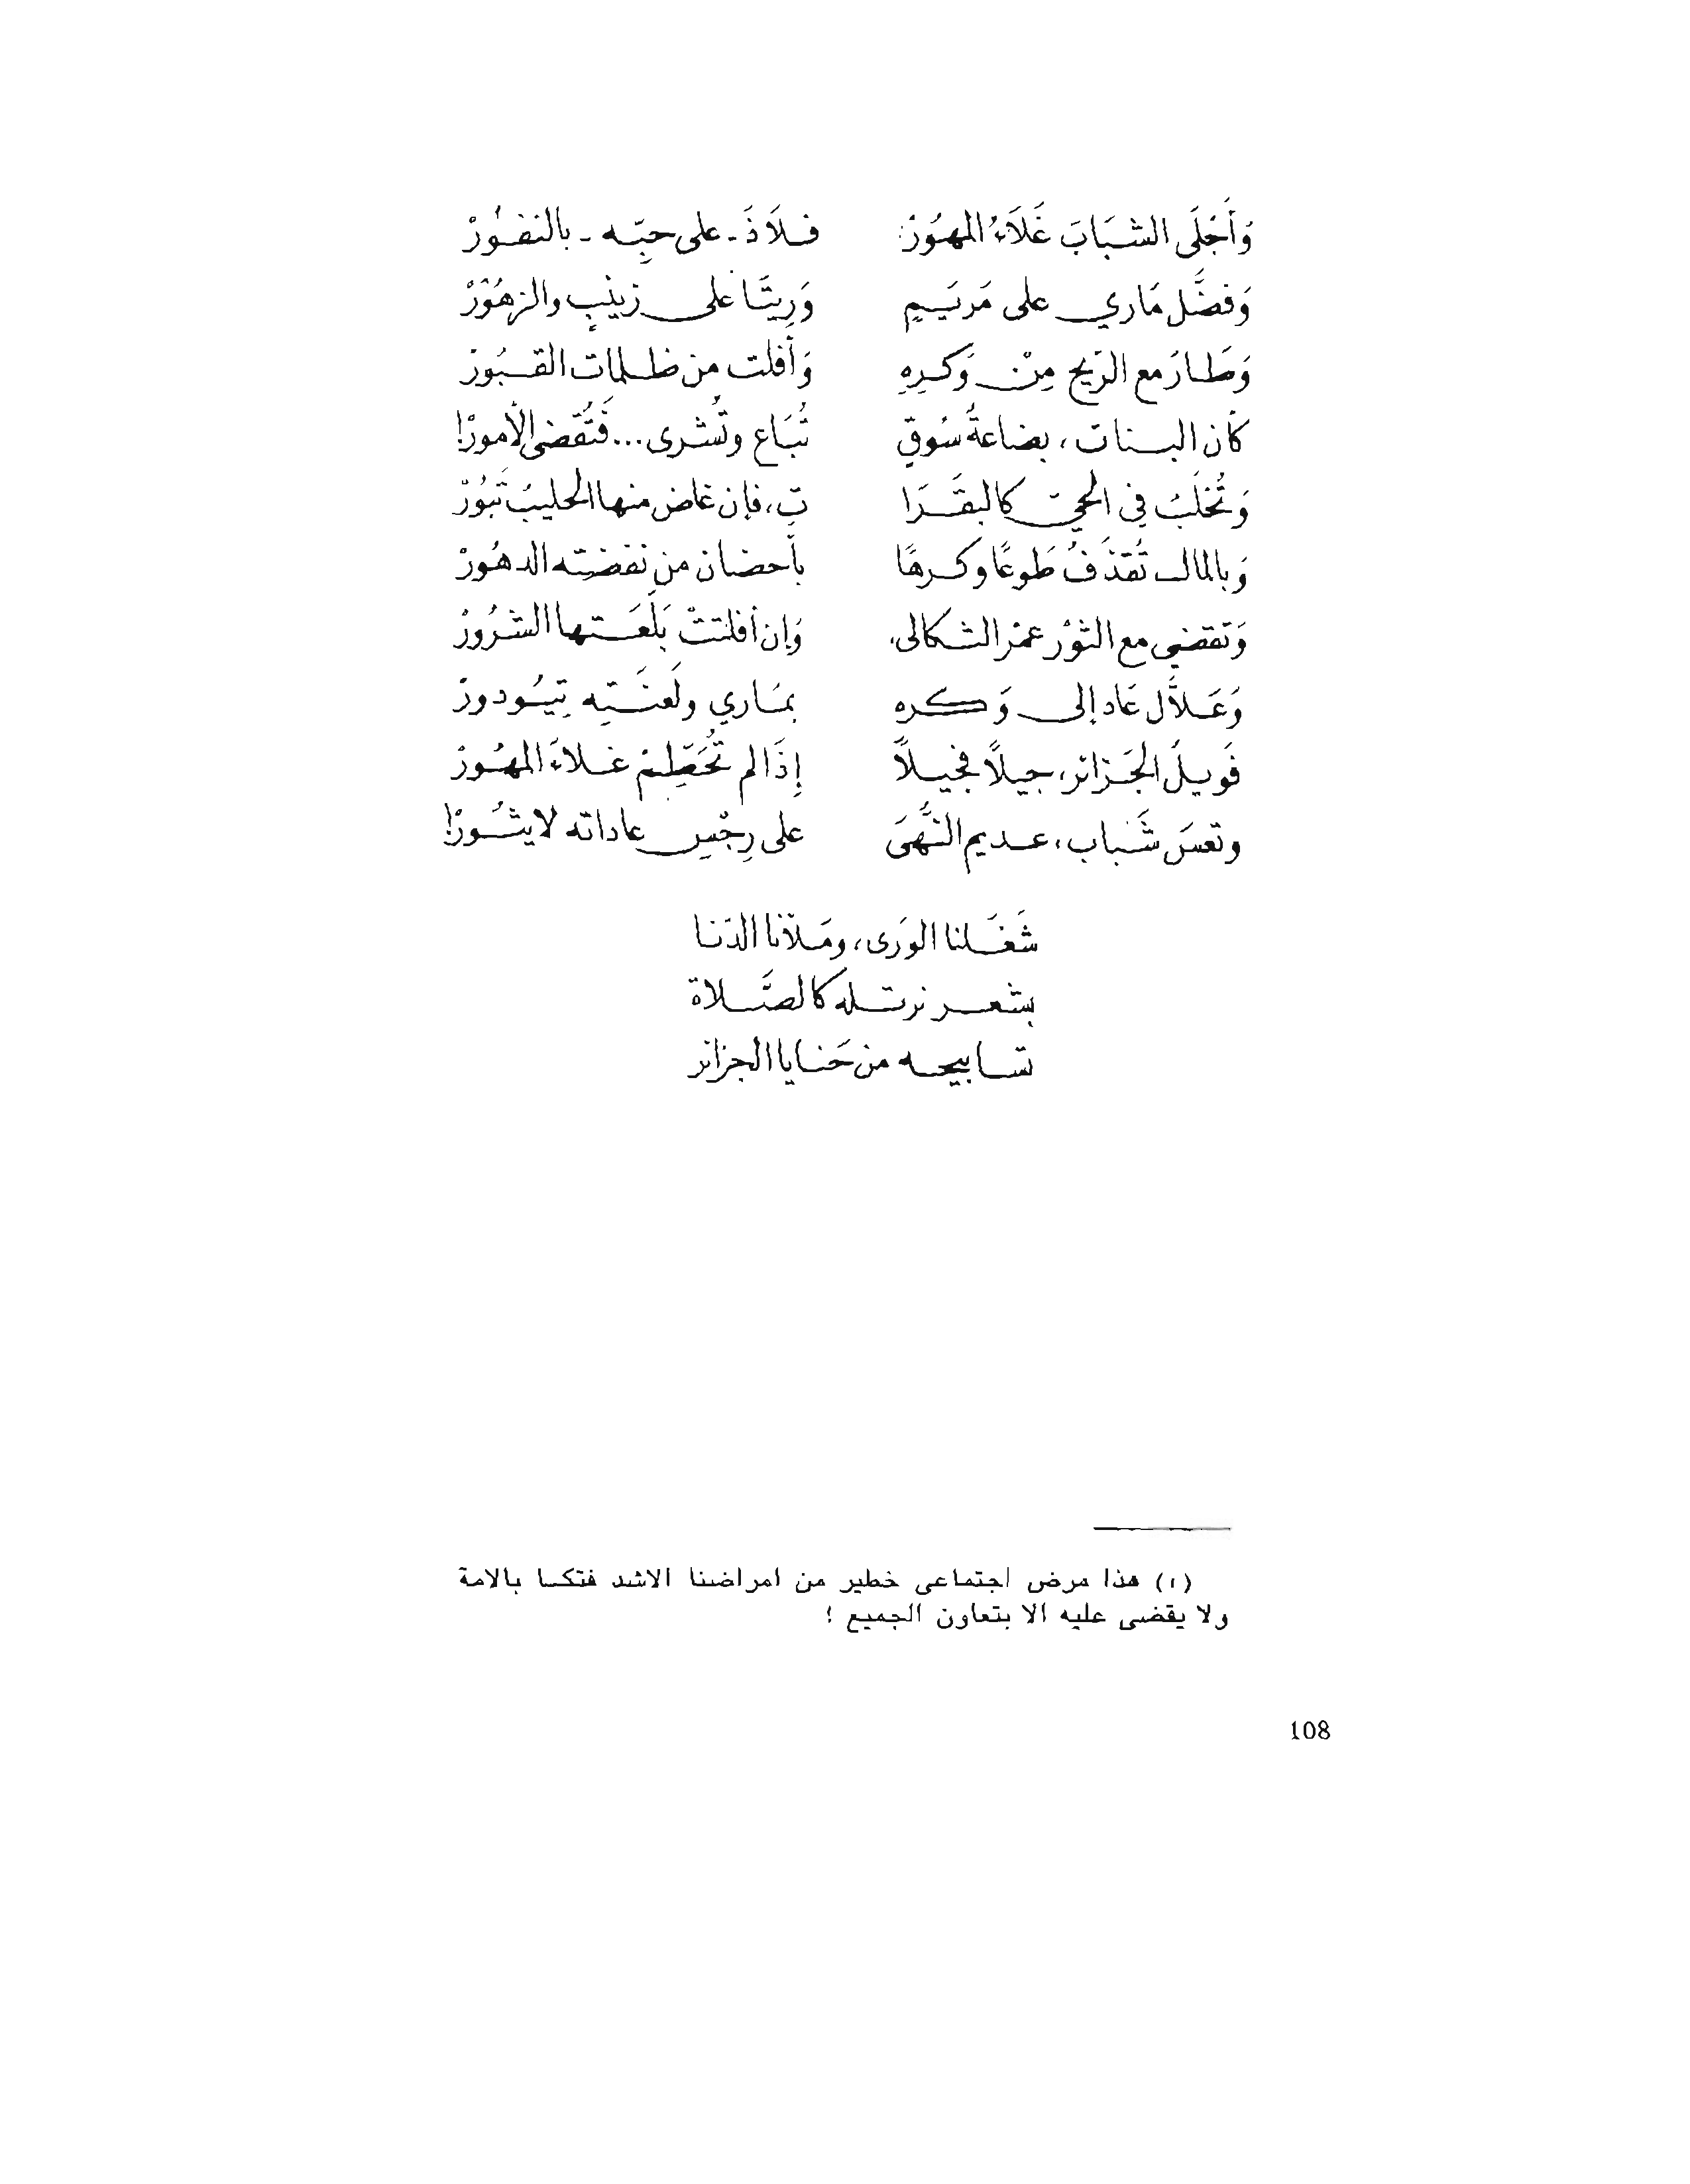 وَأَجْلَى الشَبَابَ غَلَاءُ المهُوَرْ فلَاذَ - على حبِّه - بالنفُوْر
وَفضَّل مَاري على مَريَمٍ وَرِيتَّا على زينبٍ والزهُوَرْ
وَطَارَ مع الرّيح مِنْ وَكرِهِ وَأفلت من ظلمات القبُورْ
كأن البنات، بضاعةُ سُوقٍ تُبَاع وتُشرى... فَتُقضى الأمورْ!
وَتُحْلَبُ في الحيّ كالبقَرَا تِ، فإن غاض منها الحليبُ تَبُورْ
وَبالمال تُقذَفُ طَوعًا وكرهًا بأحضان من نفضته الدهُورْ
وَتقضي مع الثوْر عمْر الثكالى، وَإن أفلتتْ بَلَعَتها الشرُورْ
وَعَلاَّل عَاد إلى وَكره بمَاري ولَعنَتِه تِيُودورْ
فَويلُ الجَزائر، جيلًا فجيلًا إِذَا لم تُحَطِّمْ غلاءَ المهُورْ
وتعسَ شَباب، عديم النُّهَى على رِجْسِ عاداته لا يثُورْ!
شَغَلنا الورَى، ومَلأنا الدّنا
بشعر نرتله كالصَّلاة
تسابيحه من حَنايا الجزائر
(١) هذا مرض اجتماعى خطير من امراضنا الاشد فتكا بالامة
ولا يقضى عليه الا بتعاون الجميع !
108